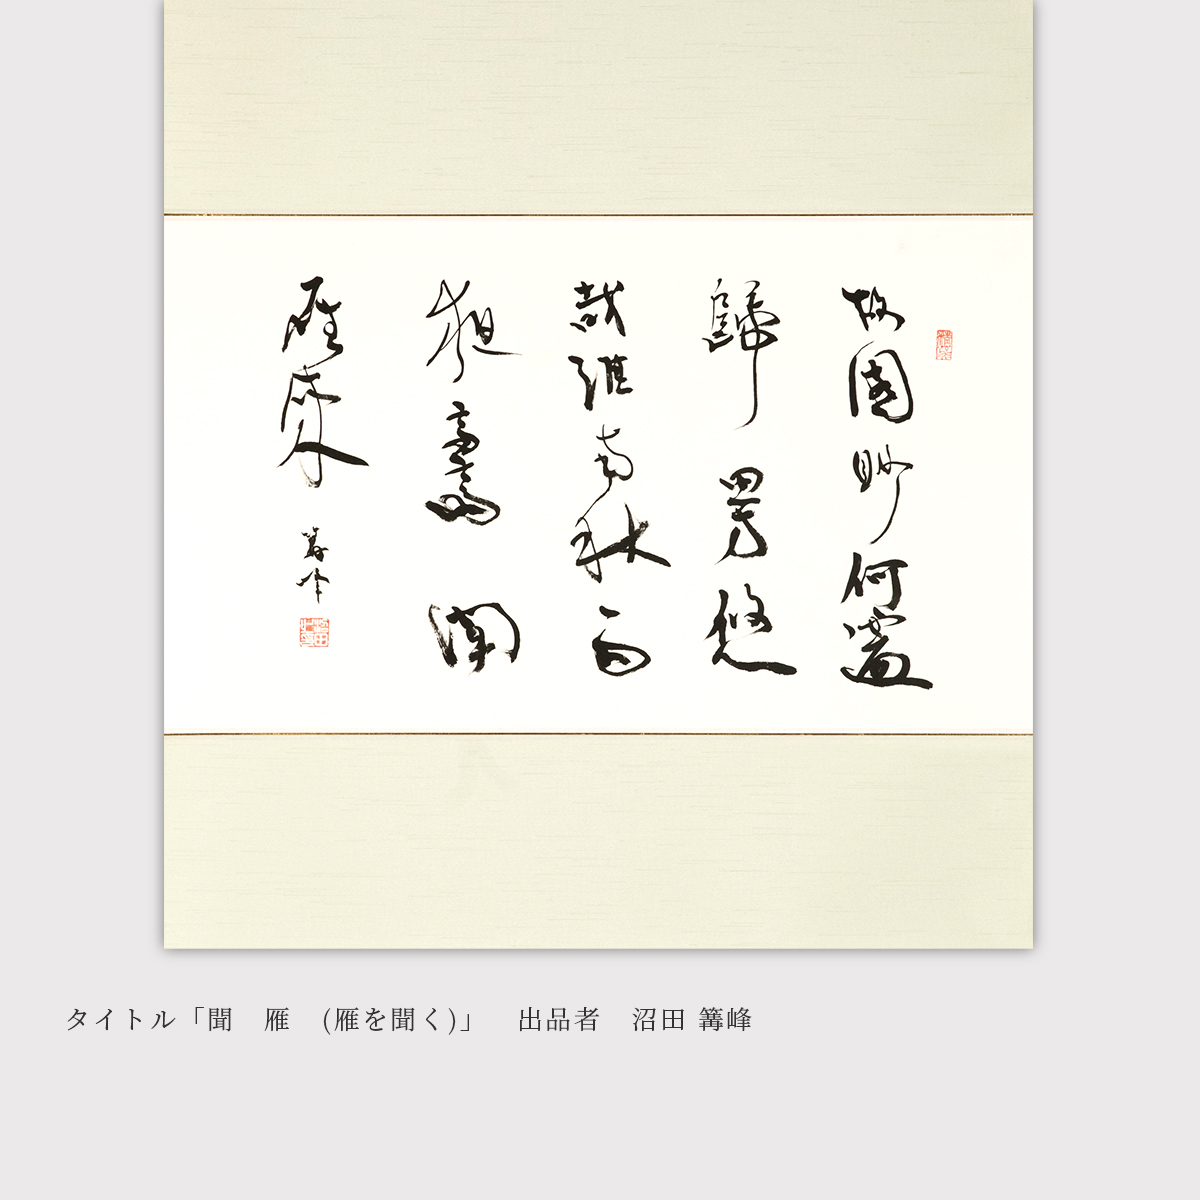 故園眇何處
歸思方悠
哉淮南秋雨
夜高齋聞
雁來 篝峰
タイトル「聞　雁　(雁を聞く)」　出品者　沼田 篝峰